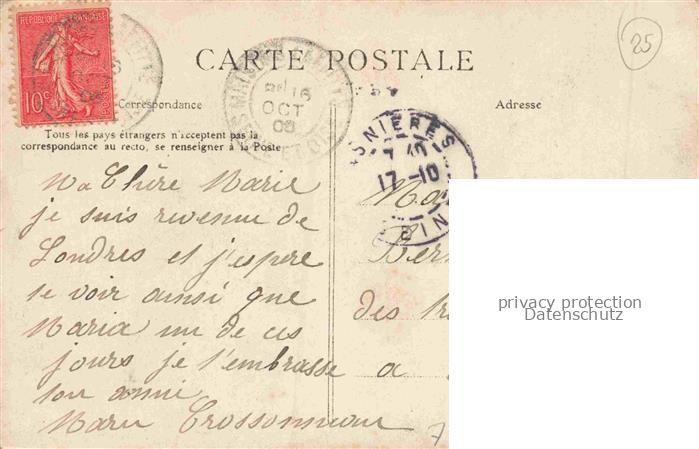 RÉPUBLIQUE FRANÇAISE
10c
CARTE POSTALE
25
Correspondance
Adresse
Tous les pays étrangers n'acceptent pas la
correspondance au recto, se renseigner à la Poste
16
OCT
08
SNIERES
17-10
Ma Chère Marie
je suis revenu de
Londres et j'espere
te voir ainsi que
Maria un de ces
jours je t'embrasse
ton ami
des
a
7
privacy protection
Datenschutz